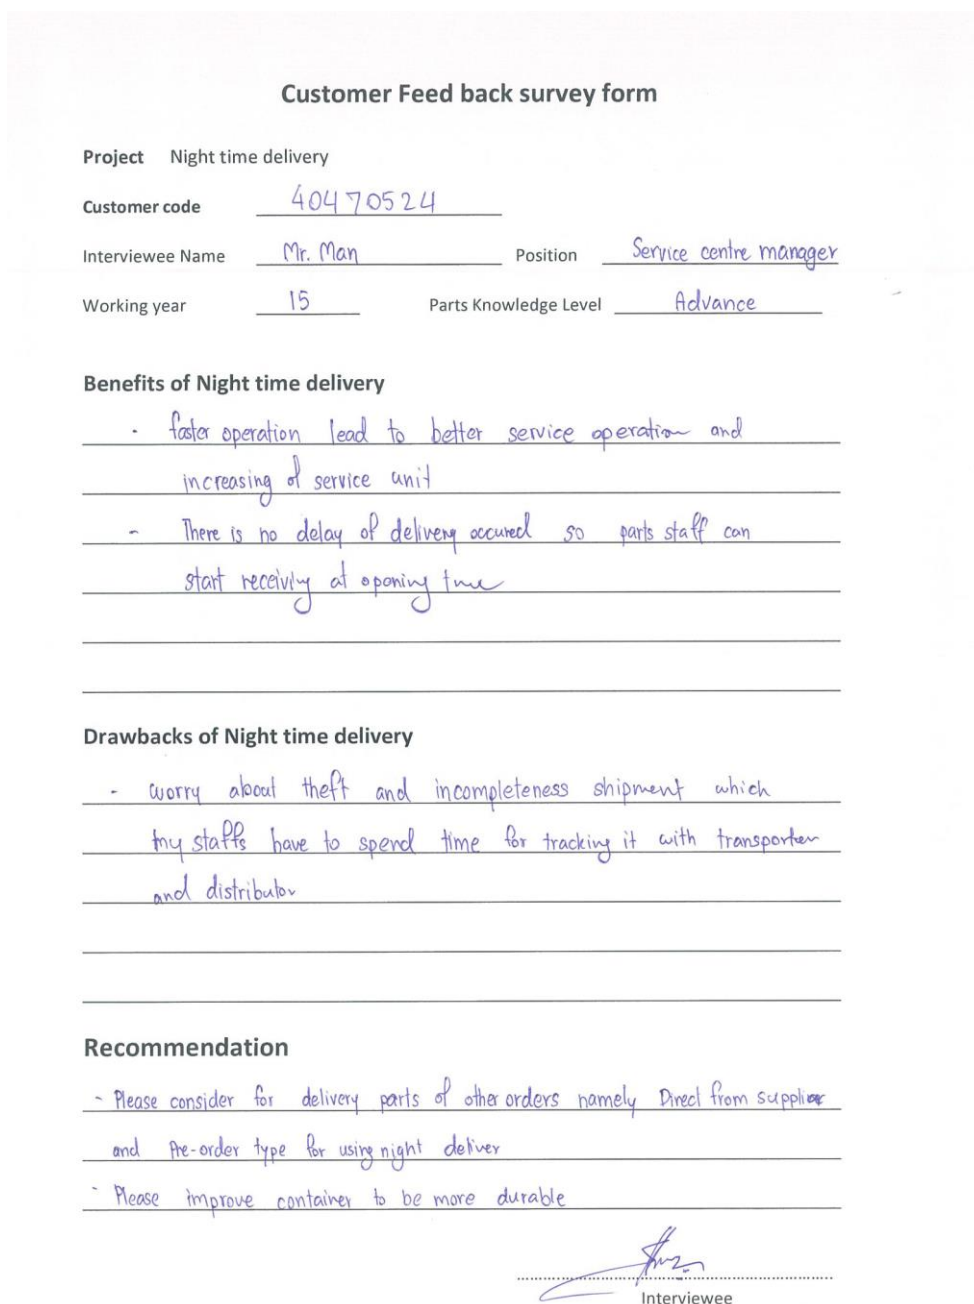 Customer Feed back survey form
Project Night time delivery
Customer code 40470524
Interviewee Name Mr. Man Position Service centre manager
Working year 15 Parts Knowledge Level Advance
Benefits of Night time delivery
- faster operation lead to better service operation and
increasing of service unit
- There is no delay of delivery occured so parts staff can
start receiving at opening time
Drawbacks of Night time delivery
- worry about theft and incompleteness shipment which
my staffs have to spend time for tracking it with transporter
and distributor
Recommendation
- Please consider for delivery parts of other orders namely Direct from supplier
and Pre-order type for using night deliver
- Please improve container to be more durable
Interviewee